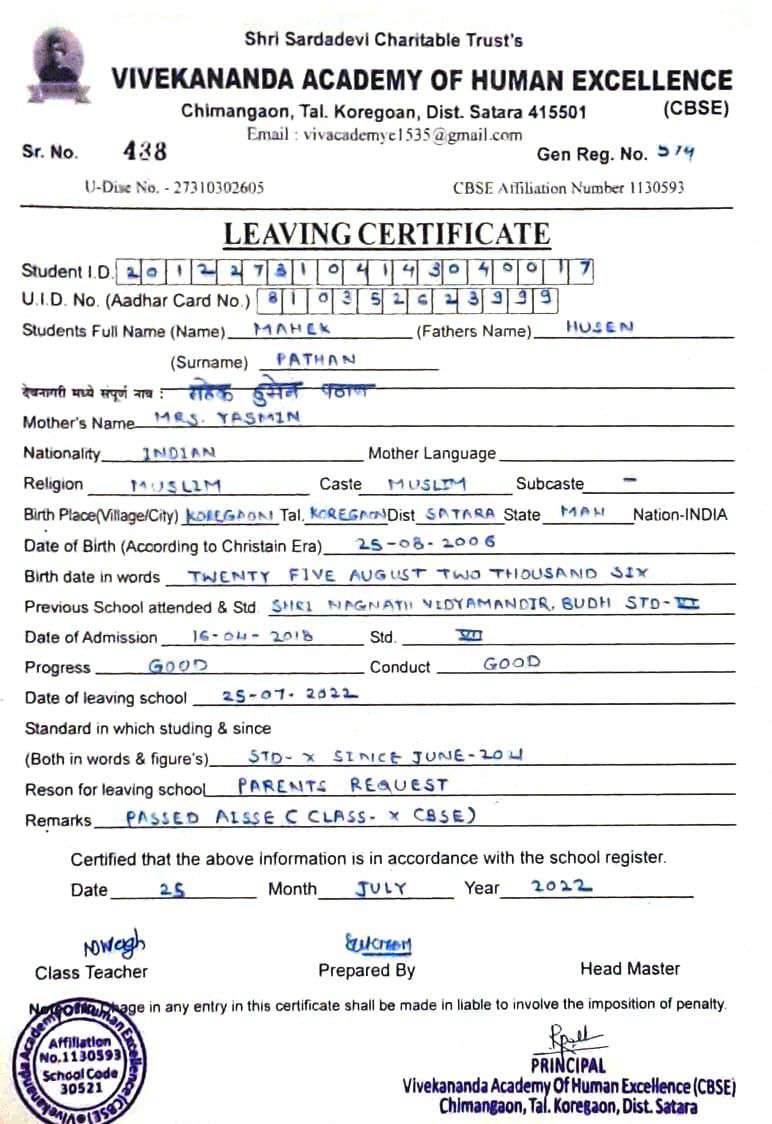 Shri Sardadevi Charitable Trust's
VIVEKANANDA ACADEMY OF HUMAN EXCELLENCE
Chimangaon, Tal. Koregoan, Dist. Satara 415501 (CBSE)
Email : vivacademyc1535@gmail.com
Sr. No. 438 Gen Reg. No. 514
U-Dise No. - 27310302605 CBSE Affiliation Number 1130593
LEAVING CERTIFICATE
Student I.D. 2012273104143040017
U.I.D. No. (Aadhar Card No.) 810352623999
Students Full Name (Name) MAHEK (Fathers Name) HUSEN
(Surname) PATHAN
देवनागरी मध्ये संपूर्ण नाव : हुसेन पठाण
Mother's Name MRS. YASMIN
Nationality INDIAN Mother Language
Religion MUSLIM Caste MUSLIM Subcaste -
Birth Place(Village/City) KOREGAON Tal. KOREGAON Dist SATARA State MAH Nation-INDIA
Date of Birth (According to Christain Era) 25-08-2006
Birth date in words TWENTY FIVE AUGUST TWO THOUSAND SIX
Previous School attended & Std. SHRI NAGNATH VIDYAMANDIR, BUDH STD-VI
Date of Admission 16-04-2018 Std. VII
Progress GOOD Conduct GOOD
Date of leaving school 25-07-2022
Standard in which studing & since
(Both in words & figure's) STD-X SINCE JUNE-2021
Reson for leaving school PARENTS REQUEST
Remarks PASSED AISSE C CLASS-X CBSE)
Certified that the above information is in accordance with the school register.
Date 25 Month JULY Year 2022
NWagh
Class Teacher Prepared By Head Master
in any entry in this certificate shall be made in liable to involve the imposition of penalty.
Vivekananda Academy Of Human Excellence (CBSE)
Affiliation
No.1130593
School Code
30521
PRINCIPAL
Vivekananda Academy Of Human Excellence (CBSE)
Chimangaon, Tal. Koregaon, Dist. Satara